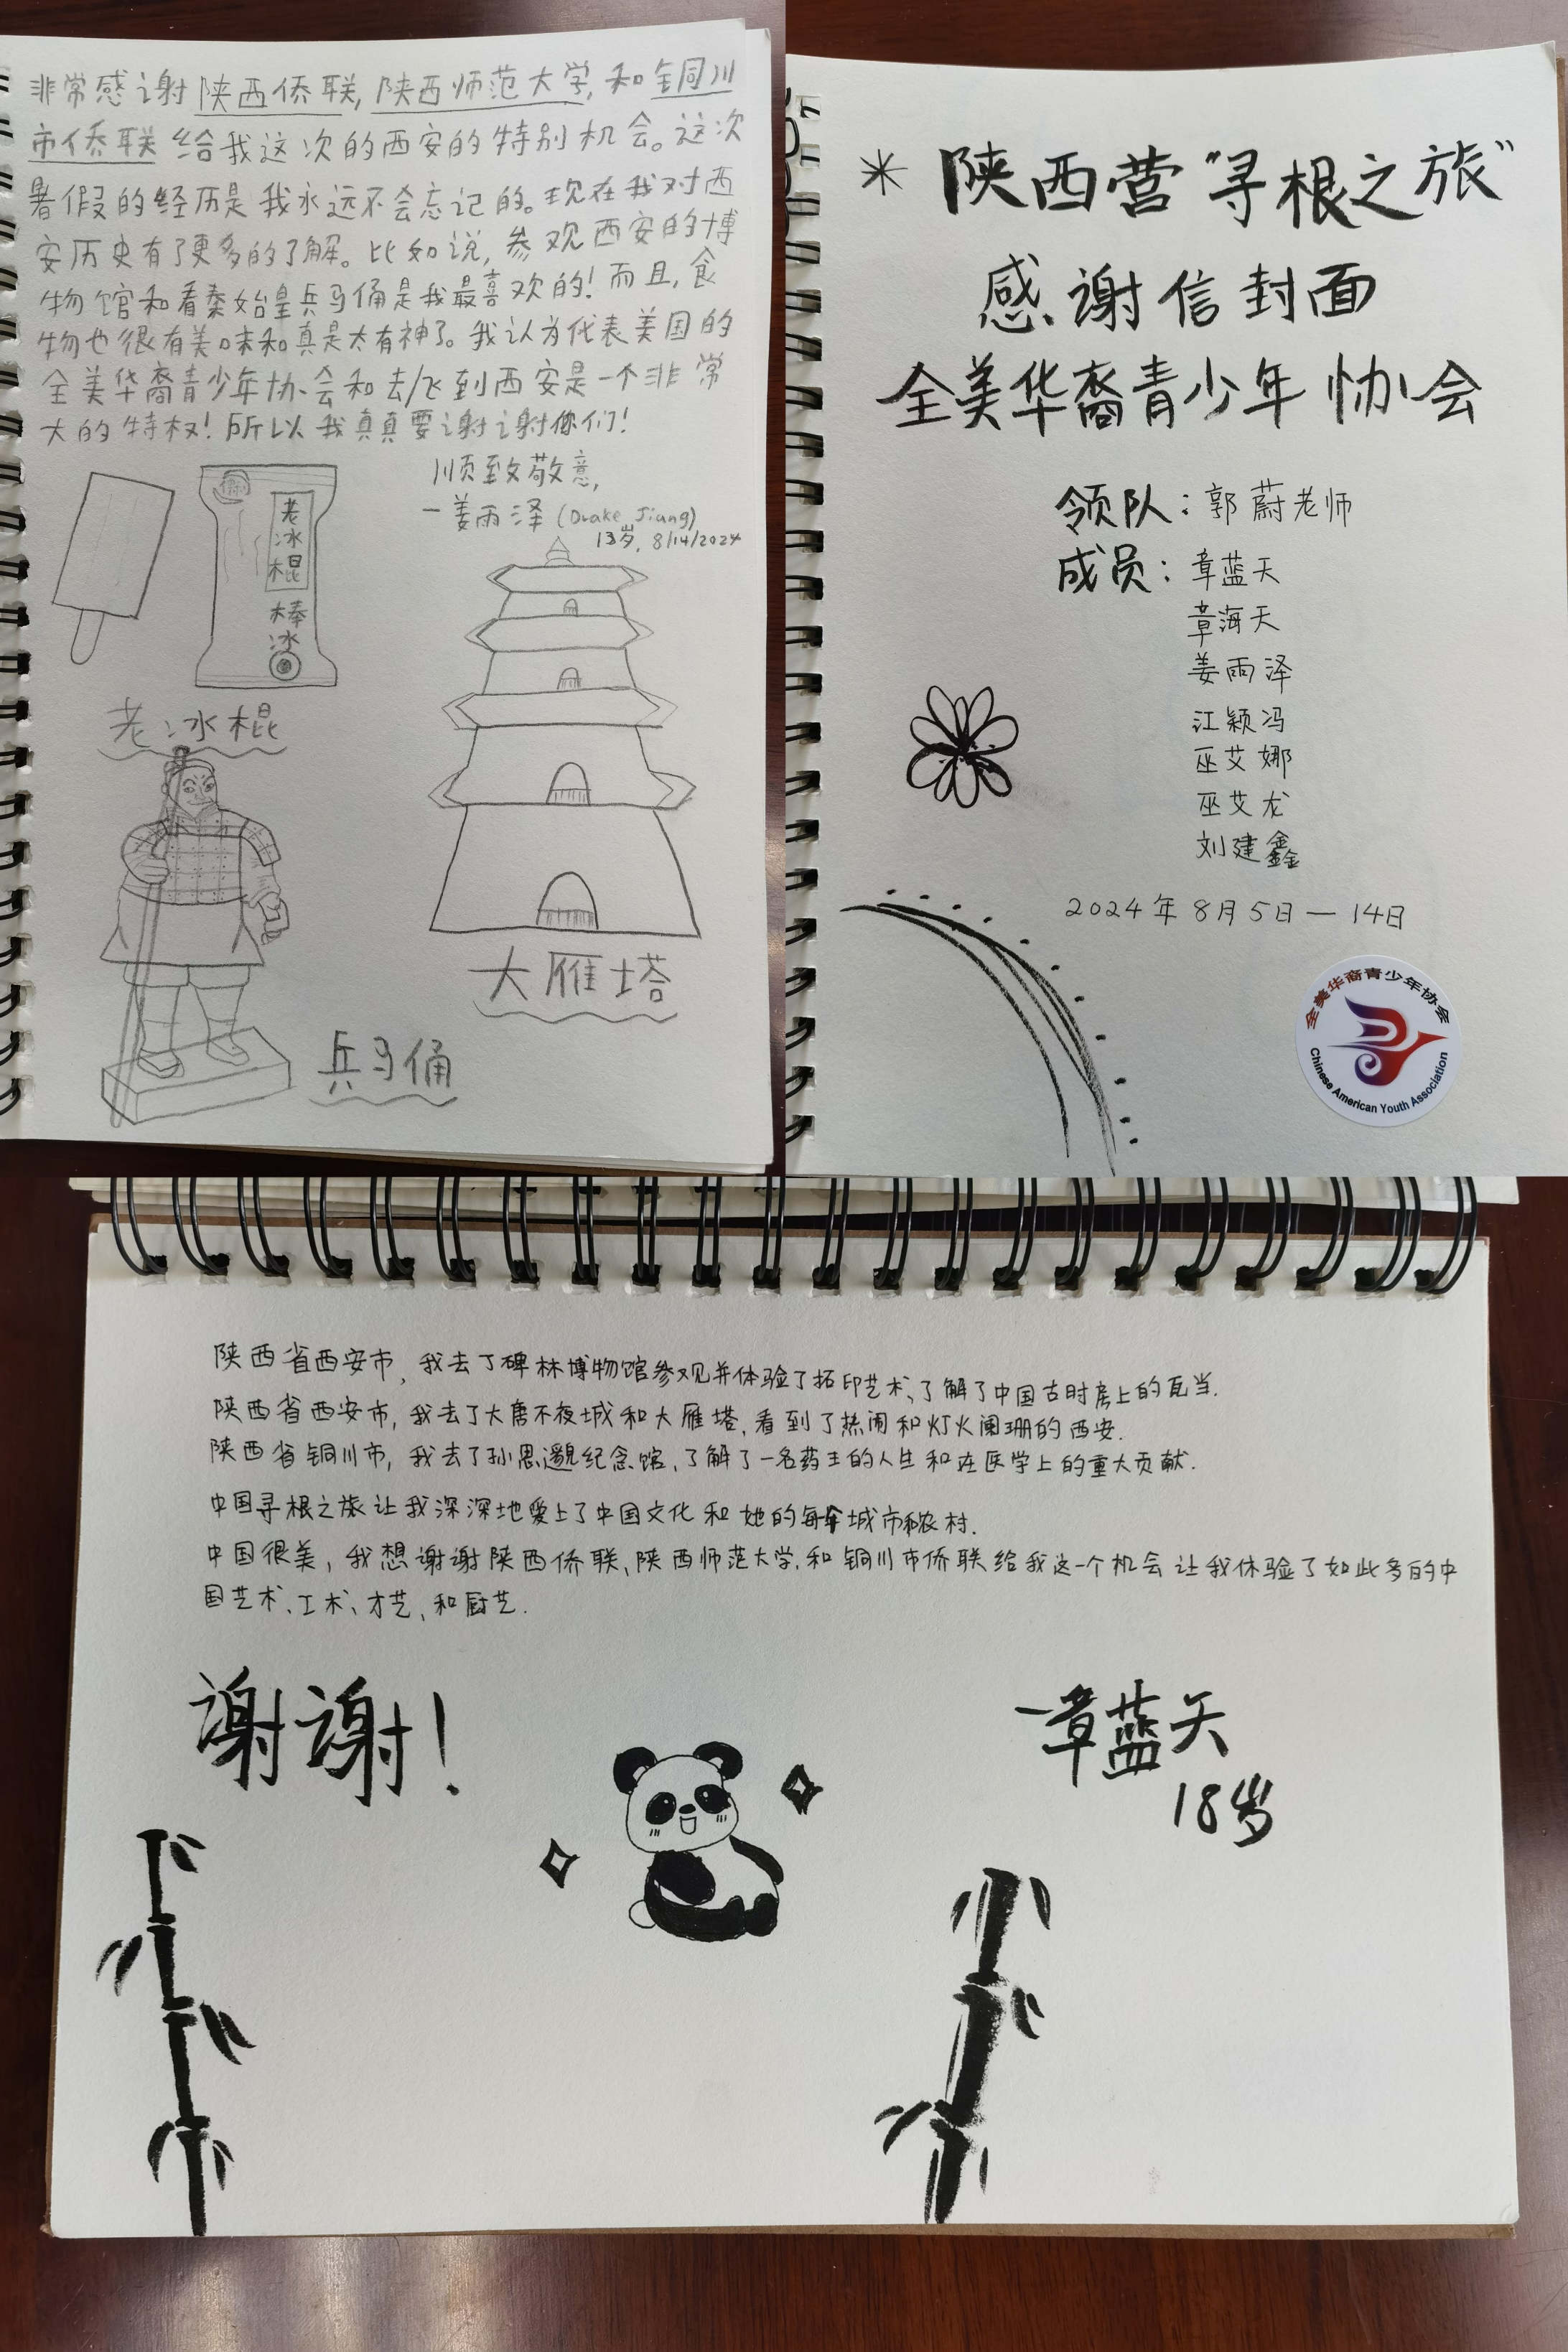 非常感谢陕西侨联,陕西师范大学,和铜川
市侨联给我这次的西安的特别机会。这次
暑假的经历是我永远不会忘记的。现在我对西
安历史有了更多的了解。比如说,参观西安的博
物馆和看秦始皇兵马俑是我最喜欢的!而且,食
物也很有美味和真是太有神了。我认为代表美国的
全美华裔青少年协会和去/飞到西安是一个非常
大的特权!所以我真真要谢谢你们!
顺致敬意,
一姜雨泽 (Drake Jiang)
13岁, 8/14/2024
老冰棍
棒冰
老冰棍
大雁塔
兵马俑
* 陕西营"寻根之旅"
感谢信封面
全美华裔青少年协会
领队:郭蔚老师
成员:章蓝天
章海天
姜雨泽
江颖冯
巫艾娜
巫艾龙
刘建鑫
2024年8月5日—14日
全美华裔青少年协会
Chinese American Youth Association
陕西省西安市,我去了碑林博物馆参观并体验了拓印艺术、了解了中国古时房上的瓦当.
陕西省西安市,我去了大唐不夜城和大雁塔,看到了热闹和灯火阑珊的西安.
陕西省铜川市,我去了孙思邈纪念馆,了解了一名药王的人生和在医学上的重大贡献.
中国寻根之旅让我深深地爱上了中国文化和她的每个城市和农村.
中国很美,我想谢谢陕西侨联,陕西师范大学,和铜川市侨联给我这一个机会让我体验了如此多的中
国艺术、工术、才艺,和厨艺.
谢谢!
一章蓝天
18岁